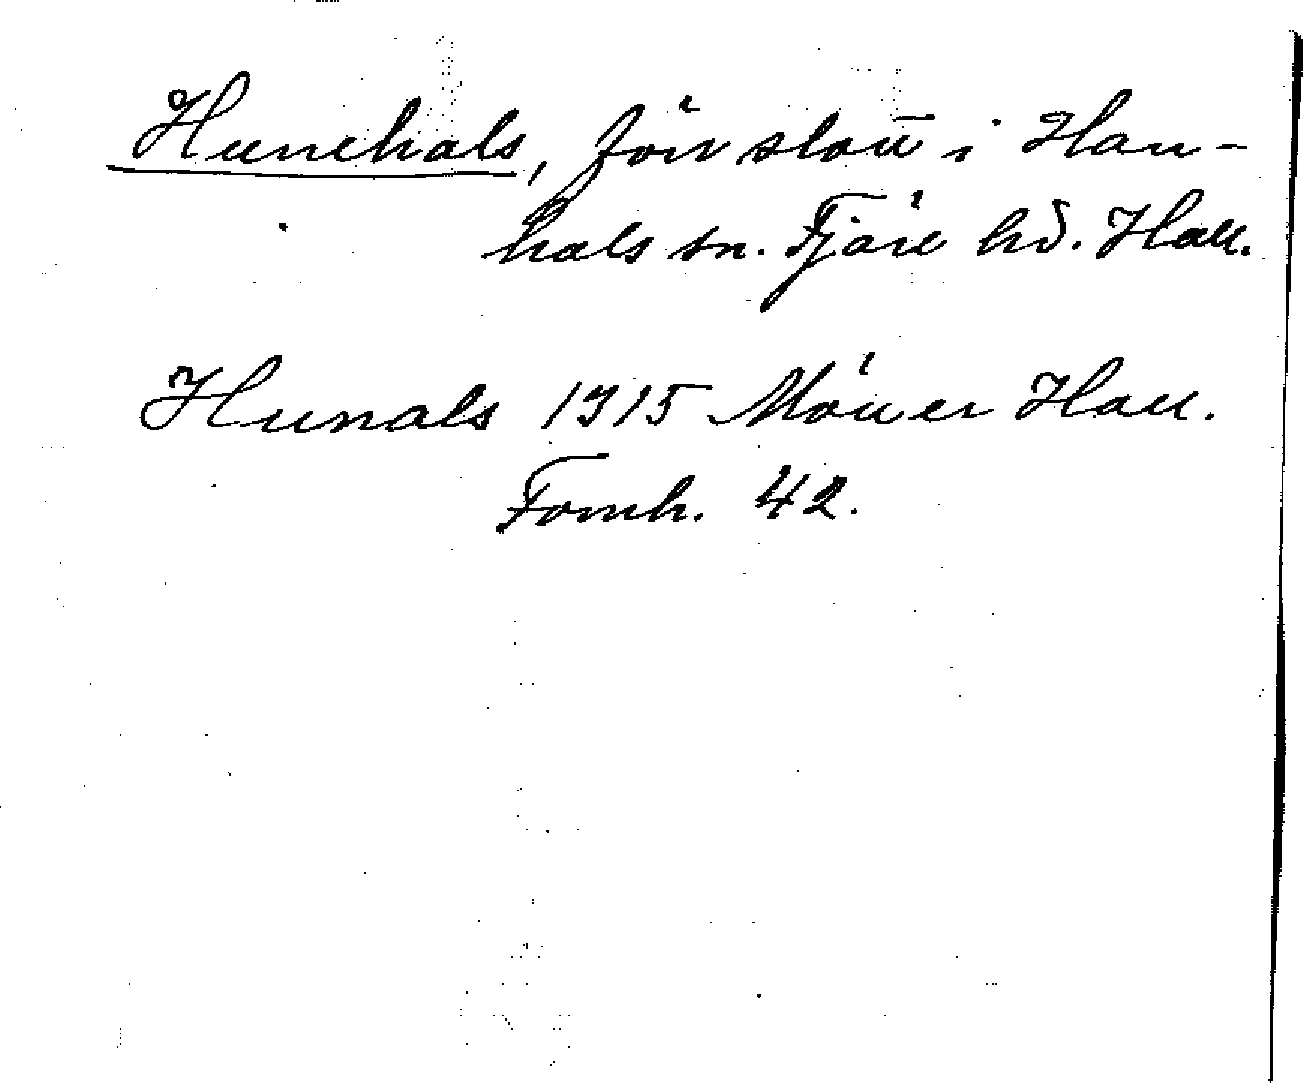 Hunehals, förr slott i Han-
hals sn. Fjäre hd. Hall.
Hunals 1315 Möller Hall.
Fornh. 42.